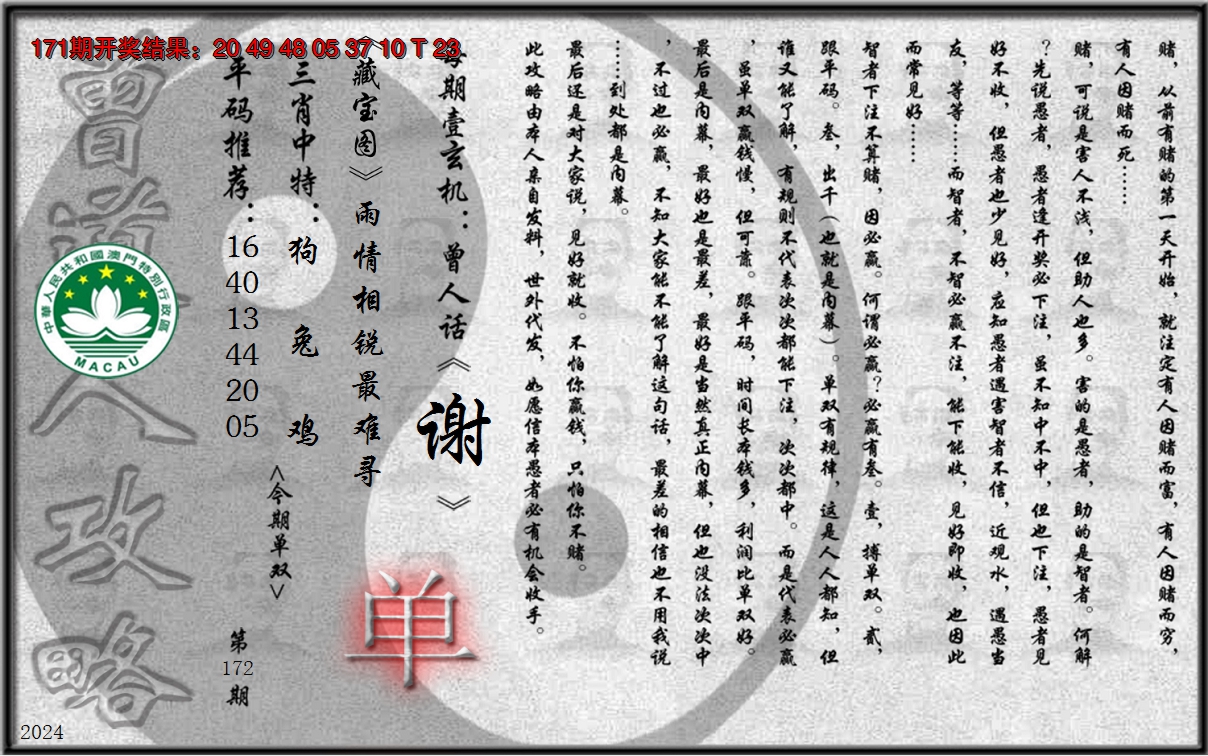 171期开奖结果：20 49 48 05 37 10 T 23
赌，从前有赌的第一天开始，就注定有人因赌而富，有人因赌而穷，
有人因赌而死……
赌，可说是害人不浅，但助人也多。害的是愚者，助的是智者。何解
？先说愚者，愚者逢开奖必下注，虽不知中不中，但也下注，愚者见
好不收，但愚者也少见好，应知愚者遇害智者不信，近观水，遇愚当
友，等等……而智者，不智必赢不注，能下能收，见好即收，也因此
而常见好……
智者下注不算赌，因必赢。何谓必赢？必赢有叁。壹，搏单双。贰，
跟平码。叁，出千（也就是内幕）。单双有规律，这是人人都知，但
谁又能了解，有规则不代表次次都能下注，次次都中。而是代表必赢
，虽单双赢钱慢，但可靠。跟平码，时间长本钱多，利润比单双好。
最后是内幕，最好也是最差，最好是当然真正内幕，但也没法次次中
，不过也必赢，不知大家能不能了解这句话，最差的相信也不用我说
……到处都是内幕。
最后还是对大家说，见好就收。不怕你赢钱，只怕你不赌。
此攻略由本人亲自发料，世外代发，如愿信本愚者必有机会收手。
每期壹玄机：曾人话《谢》
《藏宝图》雨情相锐最难寻
三肖中特：狗 兔 鸡
平码推荐：16 40 13 44 20 05
<今期单双>
单
第172期
曾道人攻略
中華人民共和國澳門特別行政區
MACAU
2024